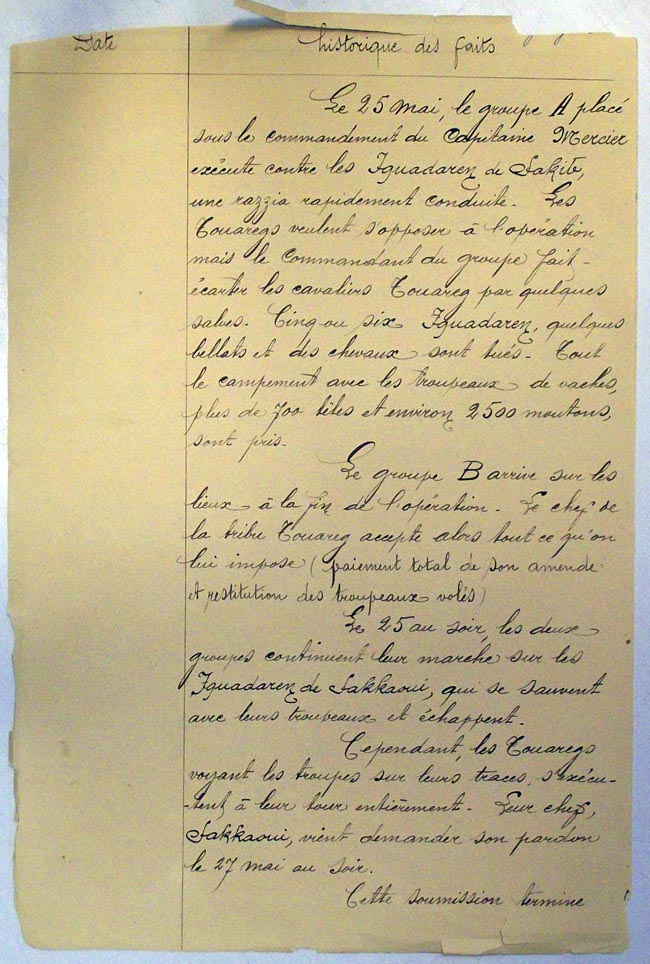 Date
historique des faits
Le 25 mai, le groupe A placé
sous le commandement du Capitaine Mercier
exécute contre les Iguadaren de Sakib,
une razzia rapidement conduite. Les
Touaregs veulent s'opposer à l'opération
mais le Commandant du groupe fait
écarter les cavaliers Touareg par quelques
salves. Cinq ou six Iguadaren, quelques
bellats et des chevaux sont tués. Tout
le campement avec les troupeaux de vaches,
plus de 700 têtes et environ 2500 moutons,
sont pris.
Le groupe B arrive sur les
lieux à la fin de l'opération. Le chef de
la tribu Touareg accepte alors tout ce qu'on
lui impose (paiement total de son amende
et restitution des troupeaux volés)
Le 25 au soir, les deux
groupes continuent leur marche sur les
Iguadaren de Sakkaoui, qui se sauvent
avec leurs troupeaux et échappent.
Cependant, les Touaregs
voyant les troupes sur leurs traces, s'exécu-
-tent, à leur tour entièrement. Leur chef,
Sakkaoui, vient demander son pardon
le 27 mai au soir.
Cette soumission termine